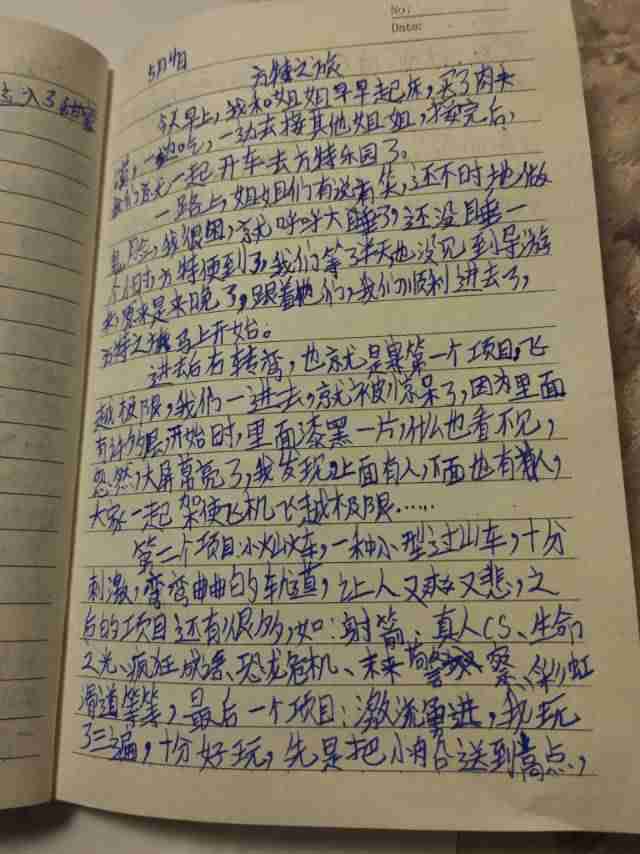 No:
Date:
5月4日
方特之旅
今天早上，我和姐姐早早起床，买了肉夹
馍，一边吃，一边去接其他姐姐，接完后，
我们一起开车去方特乐园了。
一路上，姐姐们有说有笑，还不时地做
鬼脸，我很困，就呼呼大睡了，还没睡一
个小时，方特便到了，我们等了半天也没见到导游
原来是来晚了，跟着他们，我们顺利进去了，
方特之旅马上开始。
进去后右转弯，也就是第一个项目，飞
越极限，我们一进去，就被惊呆了，因为里面
有许多层，开始时，里面漆黑一片，什么也看不见，
忽然，大屏幕亮了，我发现，上面有人，下面也有人，
大家一起驾使飞机飞越极限……
第二个项目：小火车，一种小型过山车，十分
刺激，弯弯曲曲的轨道，让人又又悲，之
后的项目还有很多，如：射箭、真人CS、生命
之光、疯狂成语、恐龙危机、未来警察、彩虹
滑道等等，最后一个项目：激流勇进，我玩
了三遍，十分好玩，先是把小船送到高点，